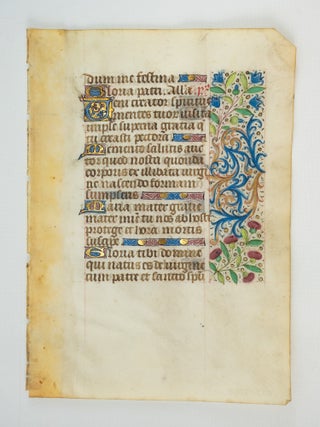 dum me festina
Gloria patri. Alla p̄s
Veni creator spiritus
mentes tuor visita
imple superna gratia q̄
tu creasti pectora
Memento salutis auc
tor quod nostri quonda
corporis ex illibata virgi
ne nascendo formam
sumpseris
Maria mater gratie
mater mīe tu nos ab hoste
protege et hora mortis
suscipe
Gloria tibi domine
qui natus es de virgine
cum patre et sancto spū